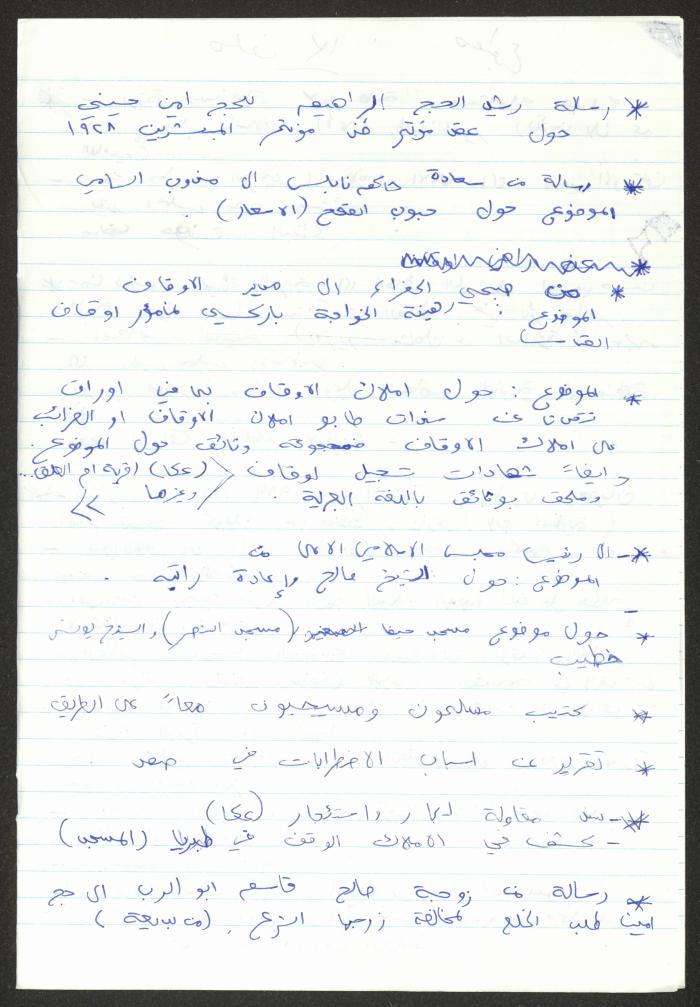 * رسالة رشيد الحج ابراهيم للحج امين حسيني
حول عقد مؤتمر ضد مؤتمر المبشرين ١٩٢٨
* رسالة من سعادة حاكم نابلس الى مندوب السامي
الموضوع حول حبوب القمح (الاسعار).
*
* من صبحي الخضراء الى مدير الاوقاف
الموضوع: رهينة الخواجة لمأمور اوقاف
القدس
* الموضوع: حول املاك الاوقاف بما في اوراق
عن سندات طابو املاك الاوقاف او الضرائب
على املاك الاوقاف مجموعة وثائق حول الموضوع.
وايضاً شهادات تسجيل اوقاف (عكا) اقرية ام
وملحق بوثائق باللغة العربية. وغيرها
* - الى رئيس مجلس الاسلامي الاعلى من
الموضوع: حول الشيخ صالح وإعادة راتبه.
* حول موضوع مسجد حيفا (مسجد النصر)، والشيخ يونس
خطيب
* كتيب مسلمون ومسيحيون معاً على الطريق
* تقرير عن اسباب الاضطرابات في صفد
* - سند مقاولة ايجار واستئجار (عكا)
- كشف في الاملاك الوقف في طبريا (المسجد)
* رسالة من زوجة صالح قاسم ابو الرب الى حج
امين طلب الخلع لمخالفة زوجها الشرع. (من بديعة)